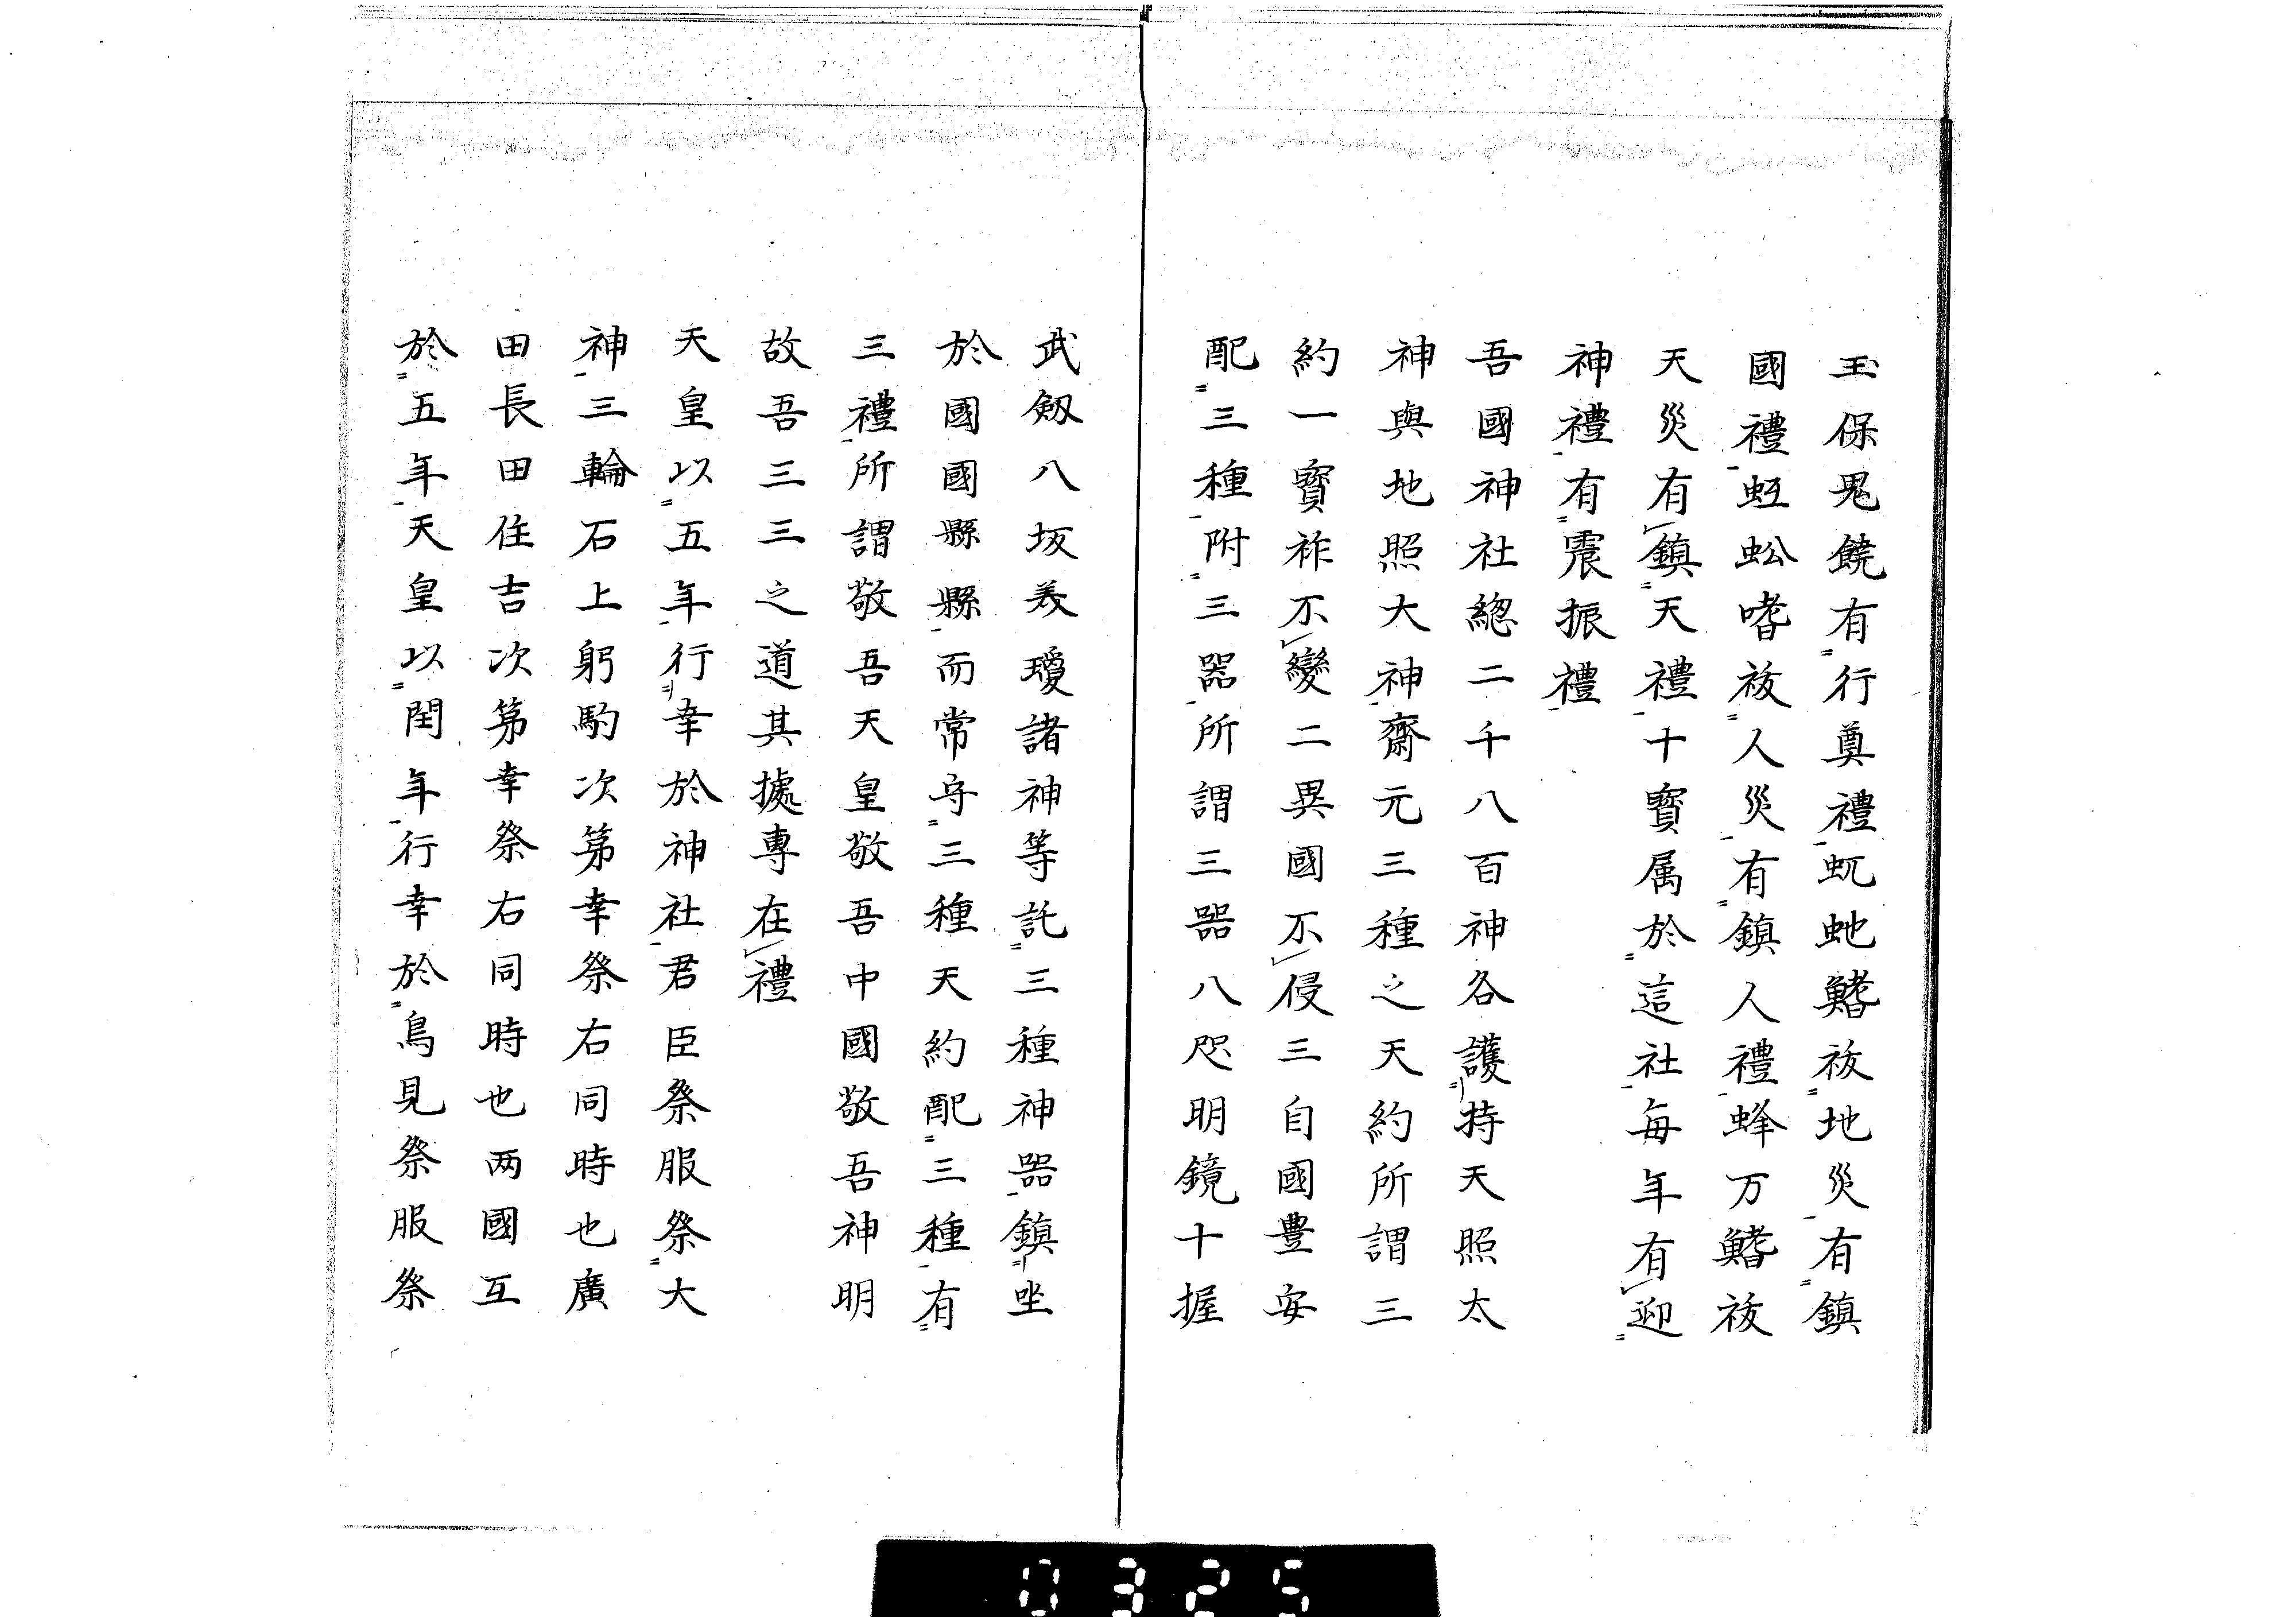 玉保鬼饒有行奠禮虬虵鰭祓地災有鎮
國禮蚟蚣嗜祓人災有鎮人禮蜂万鰭祓
天災有鎮天禮十寳属於這社每年有迎
神禮有震振禮
吾國神社総二千八百神各護持天照太
神與地照大神齋元三種之天約所謂三
約一寳祚不變二異國不侵三自國豊安
配三種附三器所謂三器八咫明鏡十握
武劔八坂美瓊諸神等託三種神器鎮坐
於國國縣縣而常守三種天約配三種有
三禮所謂敬吾天皇敬吾中國敬吾神明
故吾三三之道其據専在禮
天皇以五年行幸於神社君臣祭服祭大
神三輪石上躬駒次第幸祭右同時也廣
田長田住吉次第幸祭右同時也两國互
於五年天皇以閏年行幸於鳥見祭服祭
0325